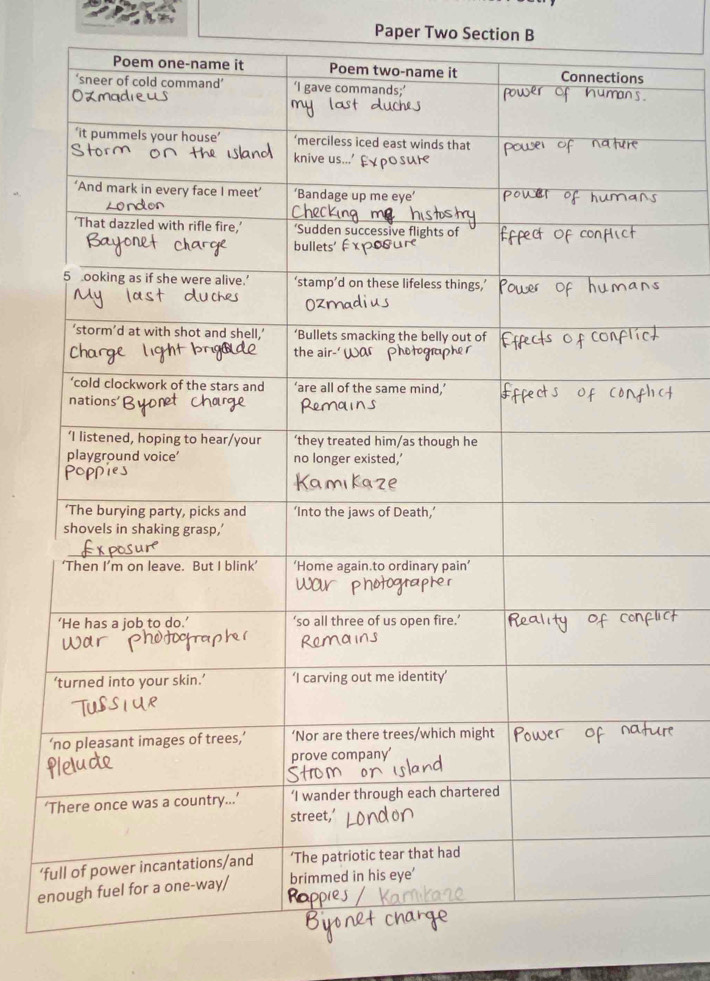 Paper Two Section B
Poem one-name it
Poem two-name it
Connections
'sneer of cold command'
Ozmadieus
'I gave commands;'
my last duches
power of humans.
'it pummels your house'
Storm on the island
'merciless iced east winds that
knive us...' Exposure
power of nature
'And mark in every face I meet'
London
'Bandage up me eye'
Checking me histostry
power of humans
'That dazzled with rifle fire,'
Bayonet charge
'Sudden successive flights of
bullets' Exposure
Effect of conflict
5 .ooking as if she were alive.'
My last duches
'stamp'd on these lifeless things,'
Ozmadius
Power of humans
'storm'd at with shot and shell,'
Charge light brigade
'Bullets smacking the belly out of
the air-' war photographer
Effects of conflict
'cold clockwork of the stars and
nations' Byonet charge
'are all of the same mind,'
Remains
Effects of conflict
'I listened, hoping to hear/your
playground voice'
Poppies
'they treated him/as though he
no longer existed,'
Kamikaze
'The burying party, picks and
shovels in shaking grasp,'
Exposure
'Into the jaws of Death,'
'Then I'm on leave. But I blink'
'Home again.to ordinary pain'
war photographer
'He has a job to do.'
war photographer
'so all three of us open fire.'
Remains
Reality of conflict
'turned into your skin.'
Tussiue
'I carving out me identity'
'no pleasant images of trees,'
Plelude
'Nor are there trees/which might
prove company'
Strom on island
Power of nature
'There once was a country...'
'I wander through each chartered
street,' London
'full of power incantations/and
enough fuel for a one-way/
'The patriotic tear that had
brimmed in his eye'
Poppies / Kamikaze
Byonet charge